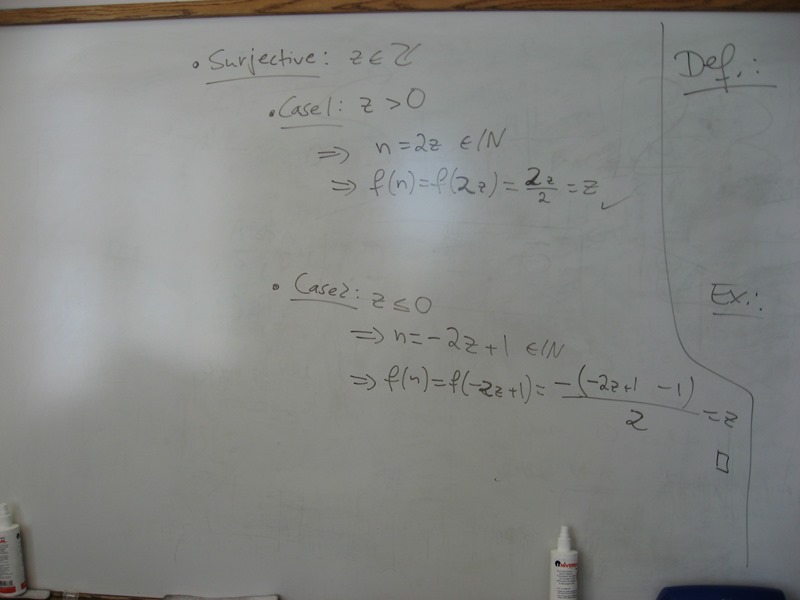 • Surjective: z ∈ ℤ
• Case1: z > 0
⇒ n = 2z ∈ ℕ
⇒ f(n) = f(2z) = 2z/2 = z ✓
• Case2: z ≤ 0
⇒ n = -2z + 1 ∈ ℕ
⇒ f(n) = f(-2z+1) = -(-2z+1 -1)/2 = z
□
Def.:
Ex.: